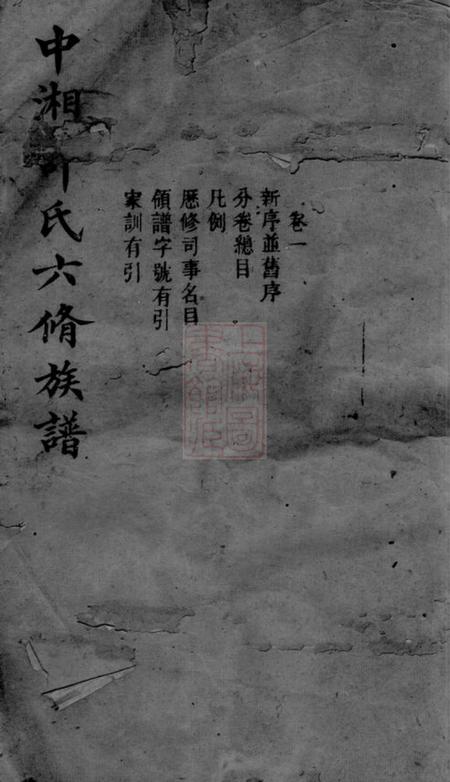 卷一
新序並舊序
分卷總目
凡例
歷修司事名目
領譜字號有引
家訓有引
中湘氏六脩族譜